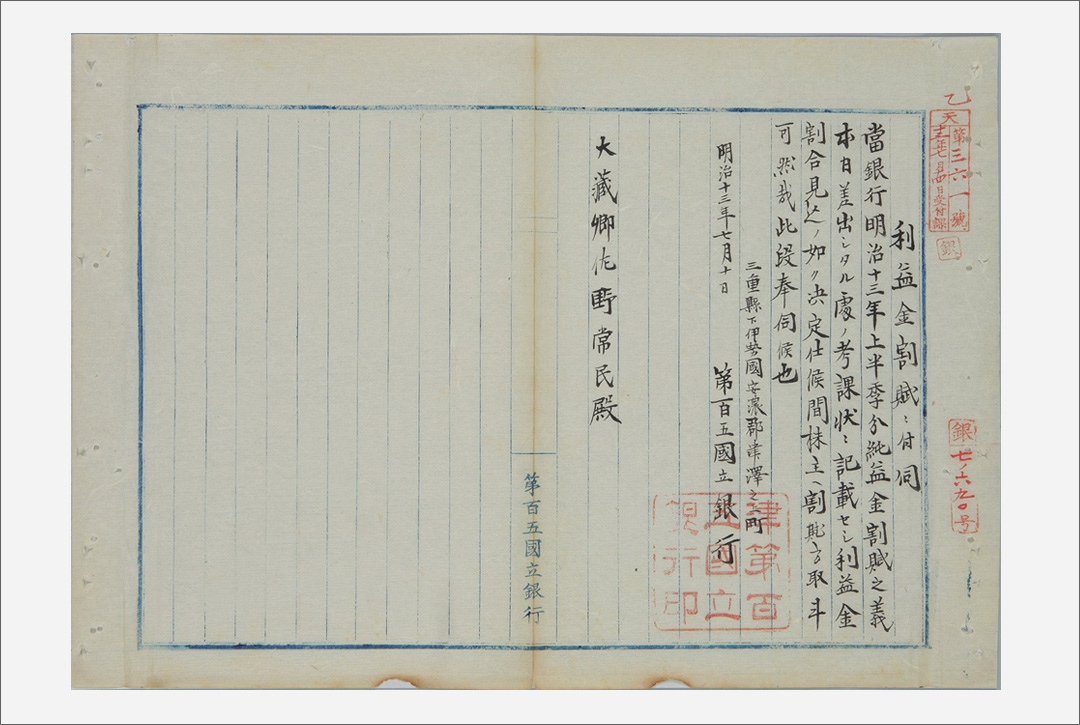 乙
天
第三六一號
十三年七月十四日受付課
銀
銀
七ノ六九〇号
利益金割賦ニ付伺
當銀行明治十三年上半季分純益金割賦之義
本日差出シタル處ノ考課状ニ記載セシ利益金
割合見込ノ如ク決定仕候間株主ヘ割賦方取斗
可然哉此段奉伺候也
三重縣下伊勢國安濃郡津澤之上町
明治十三年七月十日
第百五國立銀行
津第百
立國立
銀行印
大藏卿佐野常民殿
第百五國立銀行